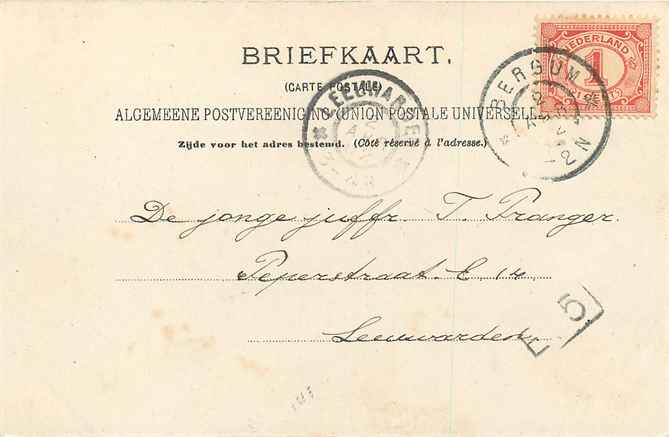 NEDERLAND
1
BRIEFKAART.
(CARTE POSTALE)
BERGUM
ALGEMEENE POSTVEREENIGING (UNION POSTALE UNIVERSELLE)
Zijde voor het adres bestemd. (Côté réservé à l'adresse.)
De jonge juffr. T. Pranger.
Peperstraat. E 14
Leeuwarden.
5